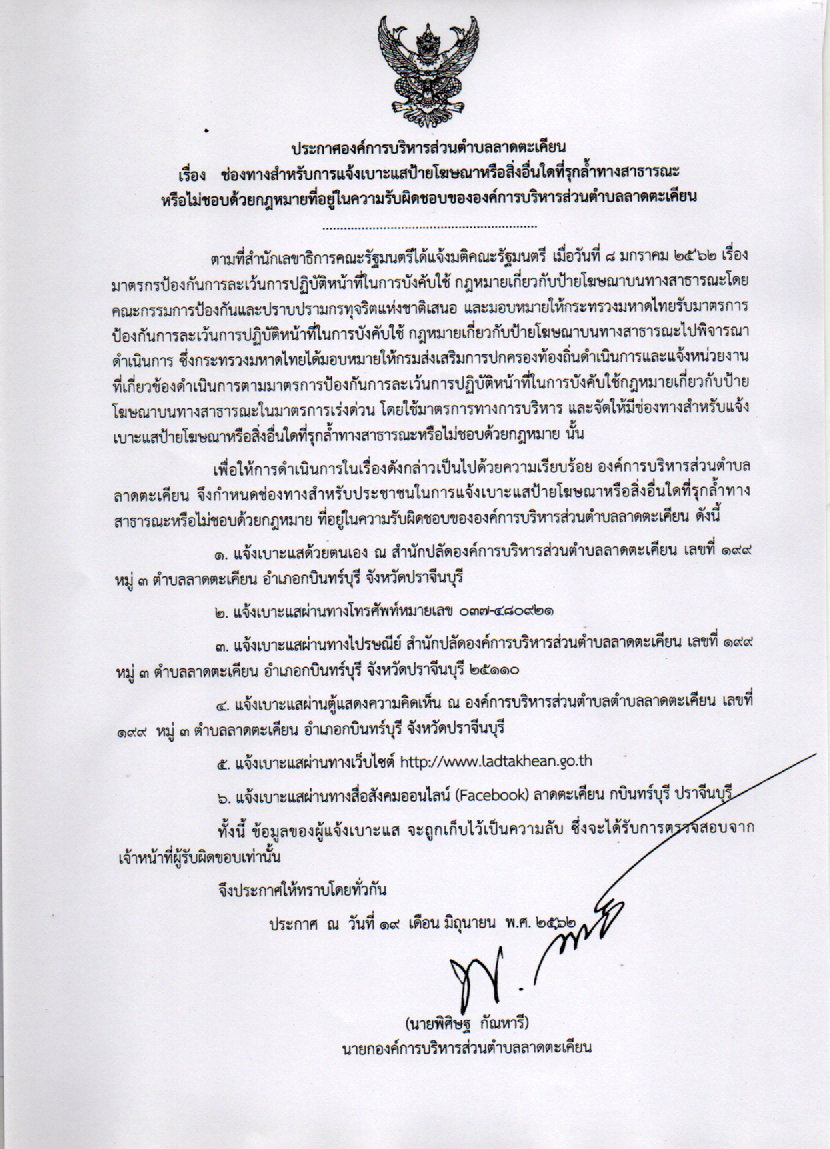 ประกาศองค์การบริหารส่วนตำบลลาดตะเคียน
เรื่อง ช่องทางสำหรับการแจ้งเบาะแสป้ายโฆษณาหรือสิ่งอื่นใดที่รุกล้ำทางสาธารณะ
หรือไม่ชอบด้วยกฎหมายที่อยู่ในความรับผิดชอบขององค์การบริหารส่วนตำบลลาดตะเคียน
ตามที่สำนักเลขาธิการคณะรัฐมนตรีได้แจ้งมติคณะรัฐมนตรี เมื่อวันที่ ๘ มกราคม ๒๕๖๒ เรื่อง
มาตรกรป้องกันการละเว้นการปฏิบัติหน้าที่ในการบังคับใช้ กฎหมายเกี่ยวกับป้ายโฆษณาบนทางสาธารณะโดย
คณะกรรมการป้องกันและปราบปรามกรทุจริตแห่งชาติเสนอ และมอบหมายให้กระทรวงมหาดไทยรับมาตรการ
ป้องกันการละเว้นการปฏิบัติหน้าที่ในการบังคับใช้ กฎหมายเกี่ยวกับป้ายโฆษณาบนทางสาธารณะไปพิจารณา
ดำเนินการ ซึ่งกระทรวงมหาดไทยได้มอบหมายให้กรมส่งเสริมการปกครองท้องถิ่นดำเนินการและแจ้งหน่วยงาน
ที่เกี่ยวข้องดำเนินการตามมาตรการป้องกันการละเว้นการปฏิบัติหน้าที่ในการบังคับใช้กฎหมายเกี่ยวกับป้าย
โฆษณาบนทางสาธารณะในมาตรการเร่งด่วน โดยใช้มาตรการทางการบริหาร และจัดให้มีช่องทางสำหรับแจ้ง
เบาะแสป้ายโฆษณาหรือสิ่งอื่นใดที่รุกล้ำทางสาธารณะหรือไม่ชอบด้วยกฎหมาย นั้น
เพื่อให้การดำเนินการในเรื่องดังกล่าวเป็นไปด้วยความเรียบร้อย องค์การบริหารส่วนตำบล
ลาดตะเคียน จึงกำหนดช่องทางสำหรับประชาชนในการแจ้งเบาะแสป้ายโฆษณาหรือสิ่งอื่นใดที่รุกล้ำทาง
สาธารณะหรือไม่ชอบด้วยกฎหมาย ที่อยู่ในความรับผิดชอบขององค์การบริหารส่วนตำบลลาดตะเคียน ดังนี้
๑. แจ้งเบาะแสด้วยตนเอง ณ สำนักปลัดองค์การบริหารส่วนตำบลลาดตะเคียน เลขที่ ๑๙๙
หมู่ ๓ ตำบลลาดตะเคียน อำเภอกบินทร์บุรี จังหวัดปราจีนบุรี
๒. แจ้งเบาะแสผ่านทางโทรศัพท์หมายเลข ๐๓๗-๔๘๐๙๒๑
๓. แจ้งเบาะแสผ่านทางไปรษณีย์ สำนักปลัดองค์การบริหารส่วนตำบลลาดตะเคียน เลขที่ ๑๙๙
หมู่ ๓ ตำบลลาดตะเคียน อำเภอกบินทร์บุรี จังหวัดปราจีนบุรี ๒๕๑๑๐
๔. แจ้งเบาะแสผ่านตู้แสดงความคิดเห็น ณ องค์การบริหารส่วนตำบลตำบลลาดตะเคียน เลขที่
๑๙๙ หมู่ ๓ ตำบลลาดตะเคียน อำเภอกบินทร์บุรี จังหวัดปราจีนบุรี
๕. แจ้งเบาะแสผ่านทางเว็บไซต์ http://www.ladtakhean.go.th
๖. แจ้งเบาะแสผ่านทางสื่อสังคมออนไลน์ (Facebook) ลาดตะเคียน กบินทร์บุรี ปราจีนบุรี
ทั้งนี้ ข้อมูลของผู้แจ้งเบาะแส จะถูกเก็บไว้เป็นความลับ ซึ่งจะได้รับการตรวจสอบจาก
เจ้าหน้าที่ผู้รับผิดขอบเท่านั้น
จึงประกาศให้ทราบโดยทั่วกัน
ประกาศ ณ วันที่ ๑๙ เดือน มิถุนายน พ.ศ. ๒๕๖๒
(นายพิศิษฐ กัณหารี)
นายกองค์การบริหารส่วนตำบลลาดตะเคียน